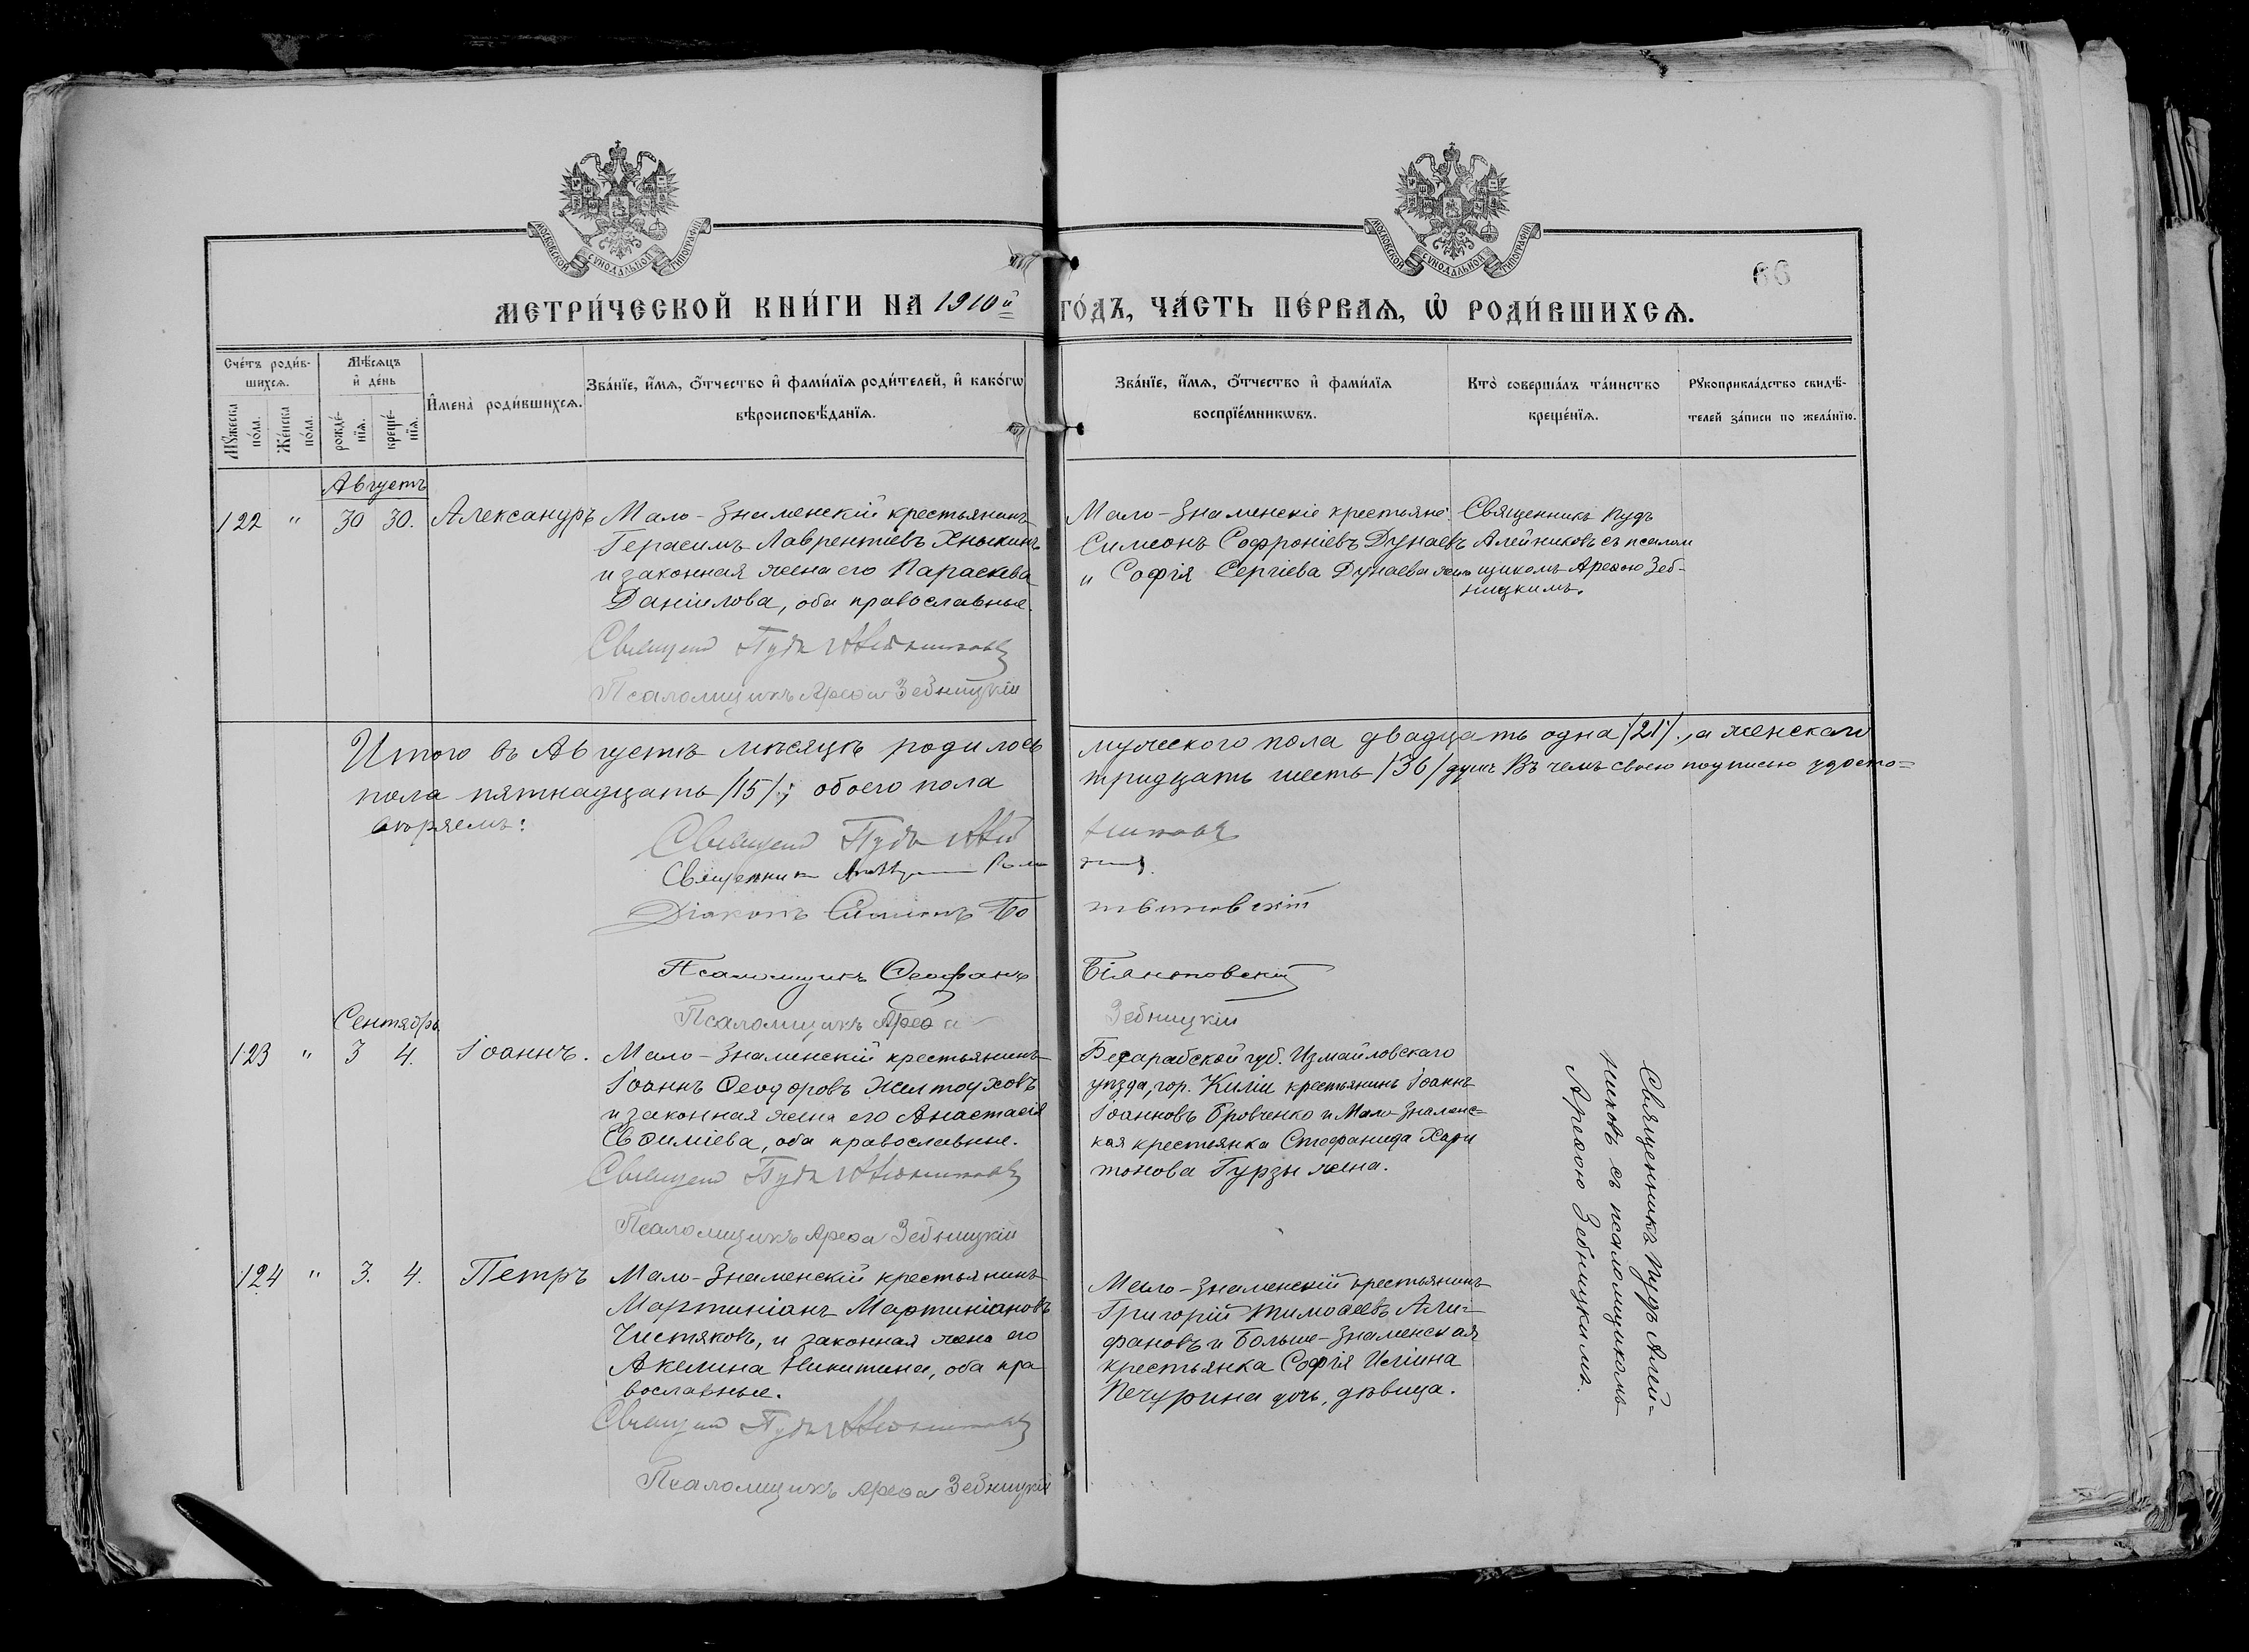 МОСКОВСКОЙ СѴНОДАЛЬНОЙ ТИПОГРАФІИ
МОСКОВСКОЙ СѴНОДАЛЬНОЙ ТИПОГРАФІИ
66
МЕТРИ́ЧЕСКОЙ КНИ́ГИ НА 1910й ГО́ДЪ, ЧА́СТЬ ПЕ́РВАѦ, Ѿ РОДИ́ВШИХСѦ.
Сче́тъ роди́в-
шихсѧ.
Мꙋ́жеска по́ла.
Же́нска по́ла.
Мѣ́сѧцъ
и҆ де́нь
рожде́-
нїѧ.
креще́-
нїѧ.
И҆мена̀ роди́вшихсѧ.
Зва́нїе, и҆́мѧ, ѻ҆́тчество и҆ фами́лїѧ роди́телей, и҆ како́гѡ
вѣроисповѣ́данїѧ.
Зва́нїе, и҆́мѧ, ѻ҆́тчество и҆ фами́лїѧ
воспрїе́мникѡвъ.
Кто̀ соверша́лъ та́инство
креще́нїѧ.
Рꙋкоприкла́дство свидѣ́-
телей за́писи по жела́нїю.
Августъ
122 " 30 30. Александръ
Мало-Знаменскій крестьянинъ
Герасимъ Лаврентіевъ Хныкинъ
и законная жена его Параскева
Даніилова, оба православные.
Священ Пудъ Алейниковъ
Псаломщикъ Арефа Зебницкій
Мало-Знаменскіе крестьяне:
Симеонъ Софроніевъ Дунаевъ
и Софія Сергіева Дунаева жена
Священникъ Пудъ
Алейниковъ съ псалом
щикомъ Арефою Зеб-
ницкимъ.
Итого въ Августѣ мѣсяцѣ родилось мужескаго пола двадцать одна /21/, а женскаго
пола пятнадцать /15/; обоего пола тридцать шесть /36/ душъ Въ чемъ своею подписью удосто=
вѣряемъ:
Священ Пудъ Алейниковъ
Священникъ
Діаконъ Симеонъ
Псаломщикъ Ѳеофанъ
Псаломщикъ Арефа Зебницкій
Сентябрь
123 " 3 4. Іоаннъ.
Мало-Знаменскій крестьянинъ
Іоаннъ Ѳеодоровъ Желтоуховъ
и законная жена его Анастасія
Евѳиміева, оба православные.
Священ Пудъ Алейниковъ
Псаломщикъ Арефа Зебницкій
Бессарабской губ. Измайловскаго
уѣзда, гор. Киліи крестьянинъ Іоаннъ
Іоанновъ Бровченко и Мало-Знаменс=
кая крестьянка Стефанида Хари
тонова Гурзы жена.
Священникъ Пудъ Алей=
никовъ съ псаломщикомъ
Арефою Зебницкимъ.
124 " 3. 4. Петръ
Мало-Знаменскій крестьянинъ
Мартиніанъ Мартиніановъ
Чистяковъ, и законная жена его
Акелина Никитина, оба пра
вославные.
Священ Пудъ Алейниковъ
Псаломщикъ Арефа Зебницкій
Мало-Знаменскій крестьянинъ
Григорій Тимоѳеевъ Али=
фановъ и Больше-Знаменская
крестьянка Софія Иліина
Печурина дочь, дѣвица.